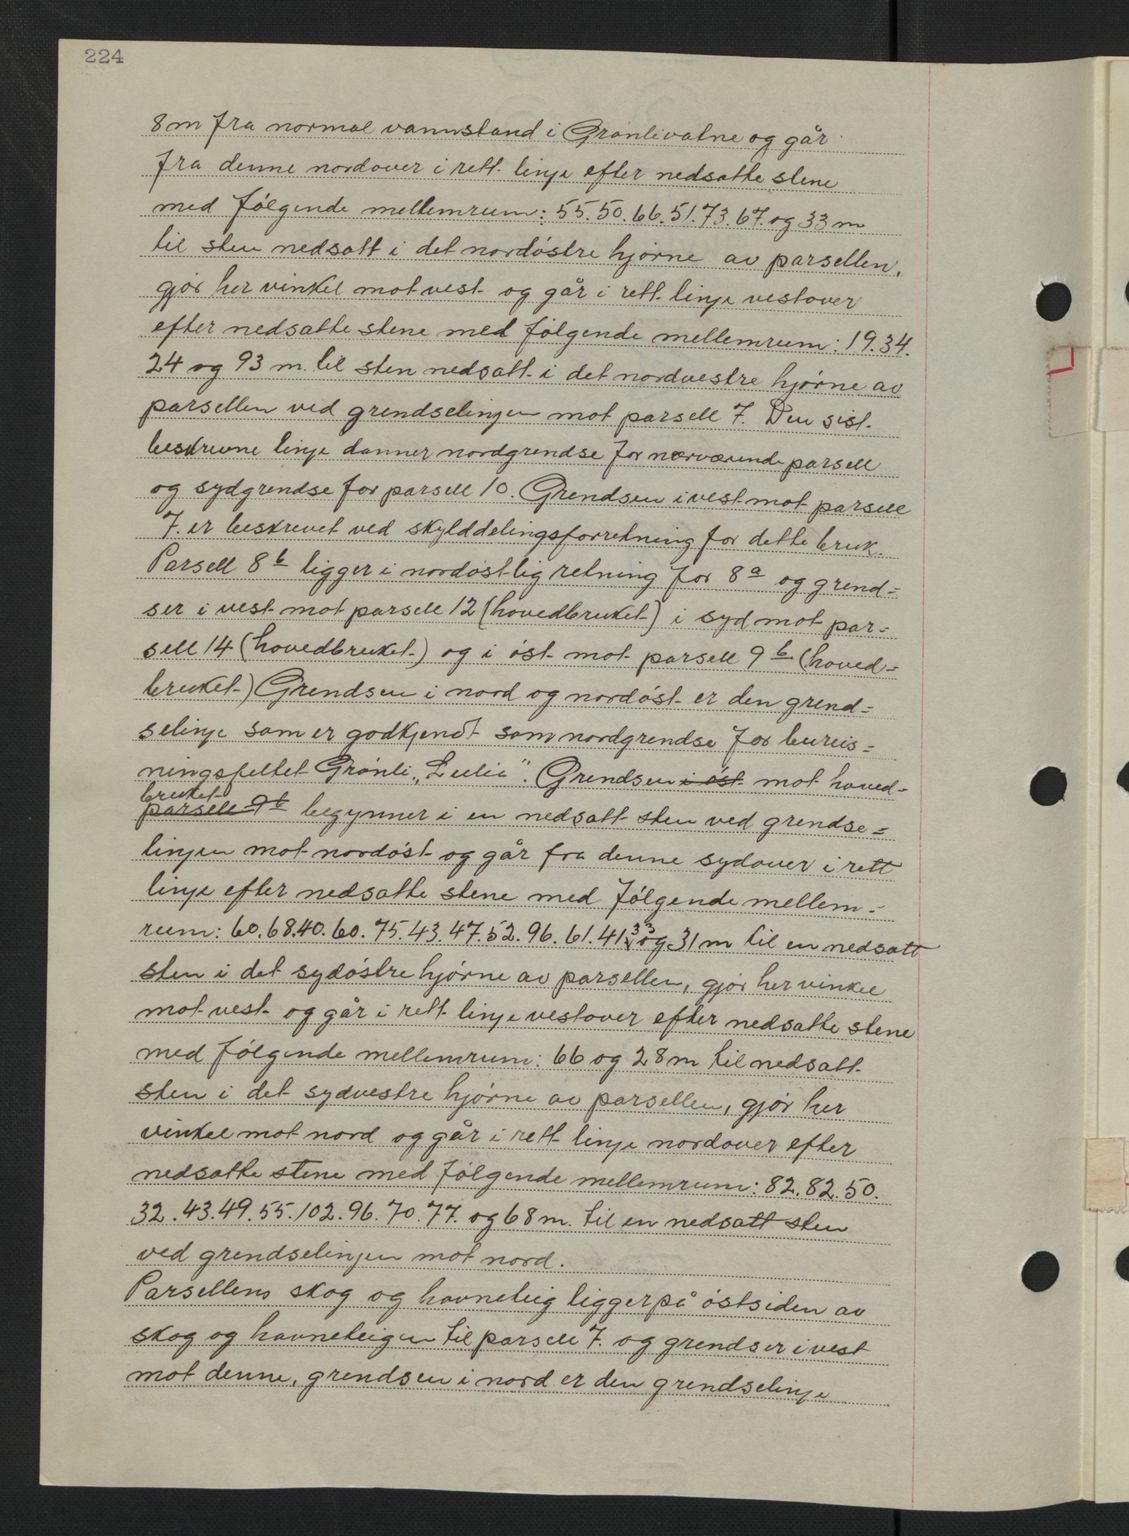 224
8 m fra normal vannstand i Grønlivatne og går
fra denne nordover i rett linje efter nedsatte stene
med følgende mellemrum: 55. 50. 66. 51. 73. 67. og 33 m
til sten nedsatt i det nordøstre hjørne av parsellen,
gjør her vinkel mot vest og går i rett linje vestover
efter nedsatte stene med følgende mellemrum: 19. 34.
24 og 93 m. til sten nedsatt i det nordvestre hjørne av
parsellen ved grendselinjen mot parsell 7. Den sist
beskrevne linje danner nordgrendse for nærværende parsell
og sydgrendse for parsell 10. Grendsen i vest mot parsell
7. er beskrevet ved skylddelingsforretning for dette bruk.
Parsell 8b ligger i nordøstlig retning for 8a og grend=
ser i vest mot parsell 12 (hovedbruket) i syd mot par=
sell 14 (hovedbruket) og i øst mot parsell 9b (hoved=
bruket) Grendsen i nord og nordøst er den grend=
selinje som er godkjendt som nordgrendse for bureis=
ningsfeltet Grønli „Lulli". Grendsen i øst mot hoved=
bruket
parsell 9b begynner i en nedsatt sten ved grendse=
linjen mot nordøst og går fra denne sydover i rett
linje efter nedsatte stene med følgende mellem=
rum: 60. 68. 40. 60. 75. 43. 47. 52. 96. 61. 41. 33 og 31 m til en nedsatt
sten i det sydøstre hjørne av parsellen, gjør her vinkel
mot vest og går i rett linje vestover efter nedsatte stene
med følgende mellemrum: 66 og 28 m til nedsatt
sten i det sydvestre hjørne av parsellen, gjør her
vinkel mot nord og går i rett linje nordover efter
nedsatte stene med følgende mellemrum: 82. 82. 50.
32. 43. 49. 55. 102. 96. 70. 77. og 68 m. til en nedsatt sten
ved grendselinjen mot nord.
Parsellens skog og havneteig ligger på østsiden av
skog og havneteigen til parsell 7. og grendser i vest
mot denne, grendsen i nord er den grendselinje